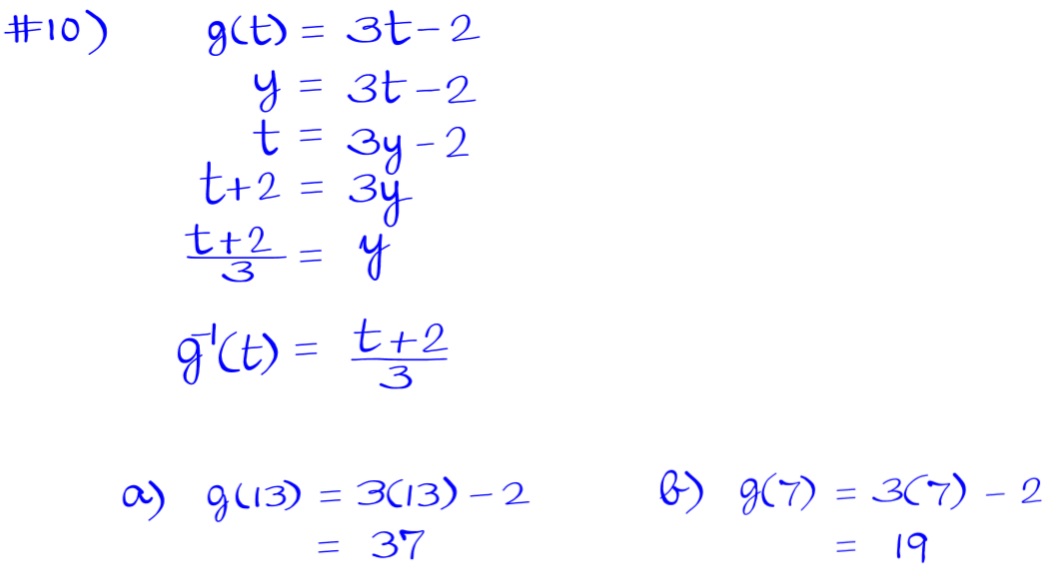 #10) g(t) = 3t - 2
y = 3t - 2
t = 3y - 2
t+2 = 3y
t+2/3 = y
g⁻¹(t) = t+2/3
a) g(13) = 3(13) - 2
= 37
b) g(7) = 3(7) - 2
= 19